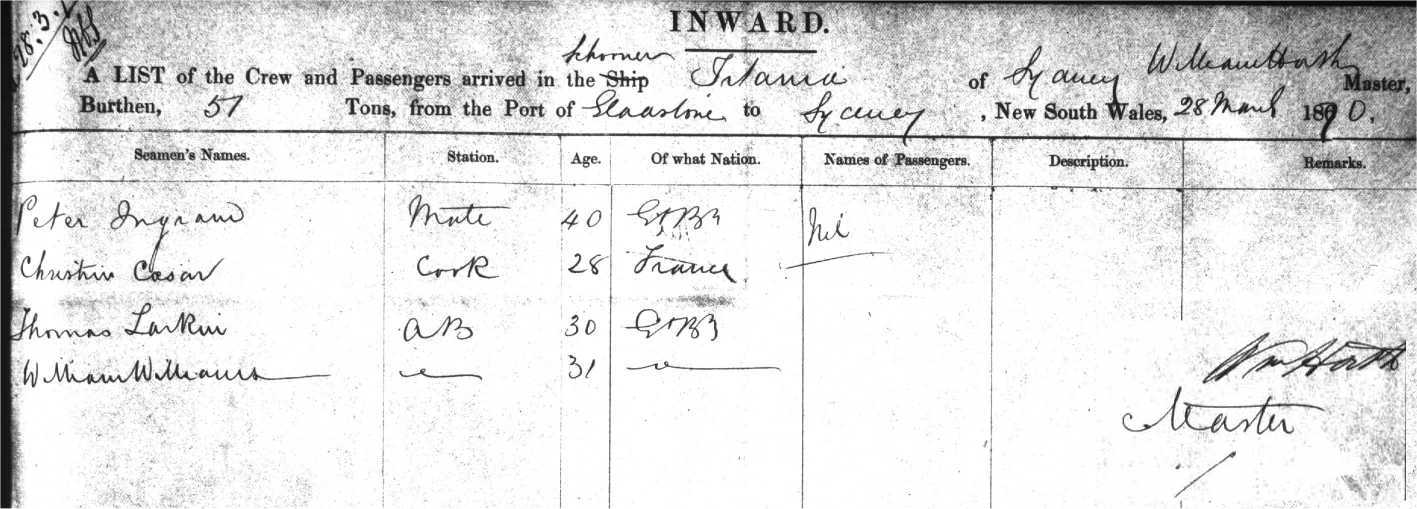 28.3.
INWARD.
Schooner
A LIST of the Crew and Passengers arrived in the Ship Titania of Sydney William Horth Master,
Burthen, 57 Tons, from the Port of Gladstone to Sydney, New South Wales, 28 March 1870.
Seamen's Names. Station. Age. Of what Nation. Names of Passengers. Description. Remarks.
Peter Ingram Mate 40 Gt Bn Nil
Christin Cæsar Cook 28 France
Thomas Larkin AB 30 Gt Bn
William Williams " 31 "
Wm Horth
Master